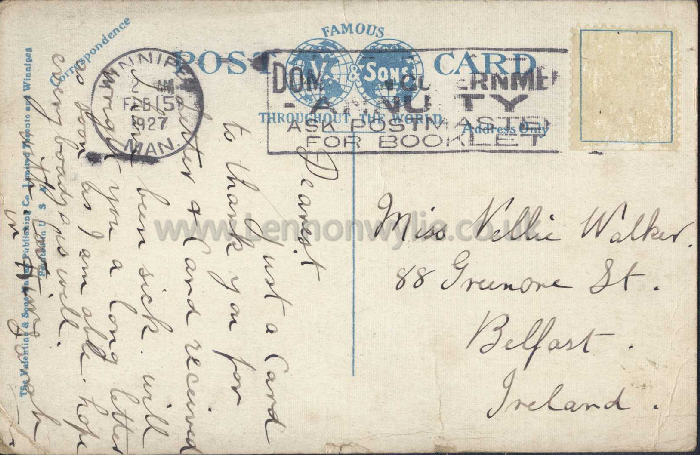 FAMOUS
V. & SONS
POST CARD
THROUGHOUT THE WORLD
Correspondence
Address Only
WINNIPEG
FEB 15
1927
MAN.
DOM GOVERNMEN
- ANNUITY
ASK POSTMASTER
FOR BOOKLET
The Valentine & Sons Publishing Co., Limited Toronto and Winnipeg
Printed in U S A
Dearest
Just a Card
to thank you for
letter & Card received
I'm been sick. will
wright you a long letter
so soon as I am able. hope
everybody is will.
Miss Nellie Walker.
88 Greenore St.
Belfast.
Ireland.
www.Lennonwylie.co.uk